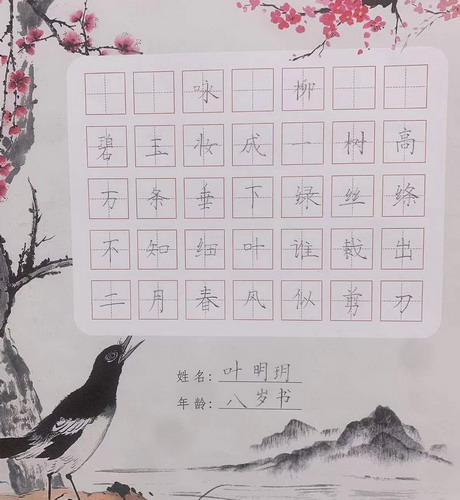 咏柳
碧玉妆成一树高
万条垂下绿丝绦
不知细叶谁裁出
二月春风似剪刀
姓名：叶明玥
年龄：八岁书